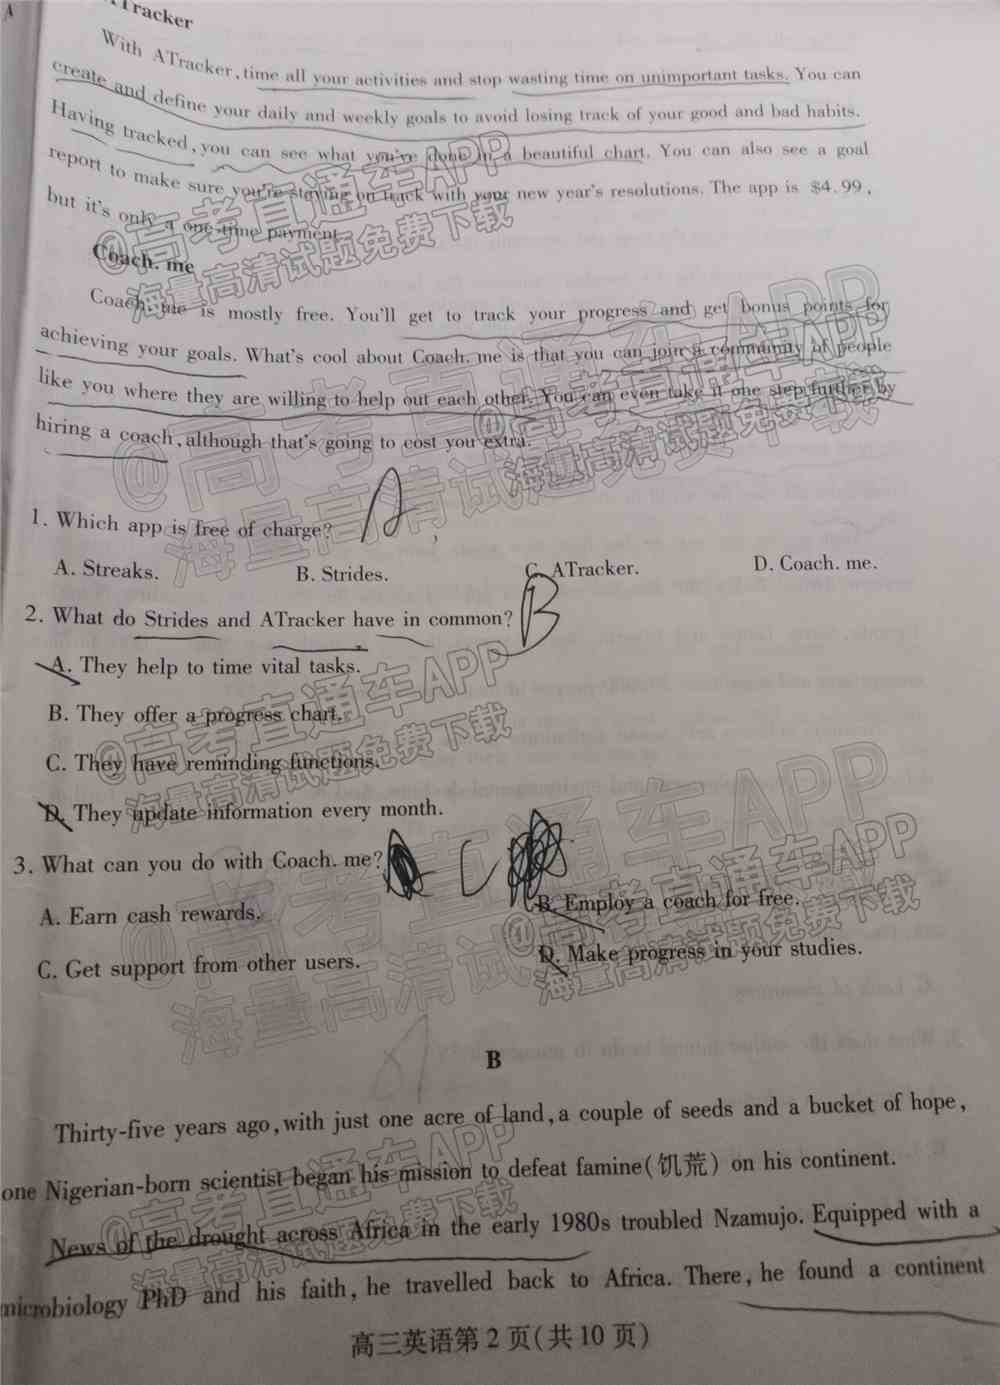 ATracker
With ATracker, time all your activities and stop wasting time on unimportant tasks. You can
create and define your daily and weekly goals to avoid losing track of your good and bad habits.
Having tracked, you can see what you've done in a beautiful chart. You can also see a goal
report to make sure you're staying on track with your new year's resolutions. The app is $4.99,
but it's only a one-time payment.
Coach. me
Coach. me is mostly free. You'll get to track your progress and get bonus points for
achieving your goals. What's cool about Coach. me is that you can join a community of people
like you where they are willing to help out each other. You can even take it one step further by
hiring a coach, although that's going to cost you extra.
1. Which app is free of charge? A
A. Streaks. B. Strides. C. ATracker. D. Coach. me.
2. What do Strides and ATracker have in common? B
A. They help to time vital tasks.
B. They offer a progress chart.
C. They have reminding functions.
D. They update information every month.
3. What can you do with Coach. me? C
A. Earn cash rewards. B. Employ a coach for free.
C. Get support from other users. D. Make progress in your studies.
B
Thirty-five years ago, with just one acre of land, a couple of seeds and a bucket of hope,
one Nigerian-born scientist began his mission to defeat famine(饥荒) on his continent.
News of the drought across Africa in the early 1980s troubled Nzamujo. Equipped with a
microbiology PhD and his faith, he travelled back to Africa. There, he found a continent
高三英语第 2 页(共 10 页)
@高考直通车APP
海量高清试题免费下载
@高考直通车APP
海量高清试题免费下载
@高考直通车APP
海量高清试题免费下载
@高考直通车APP
海量高清试题免费下载
@高考直通车APP
海量高清试题免费下载